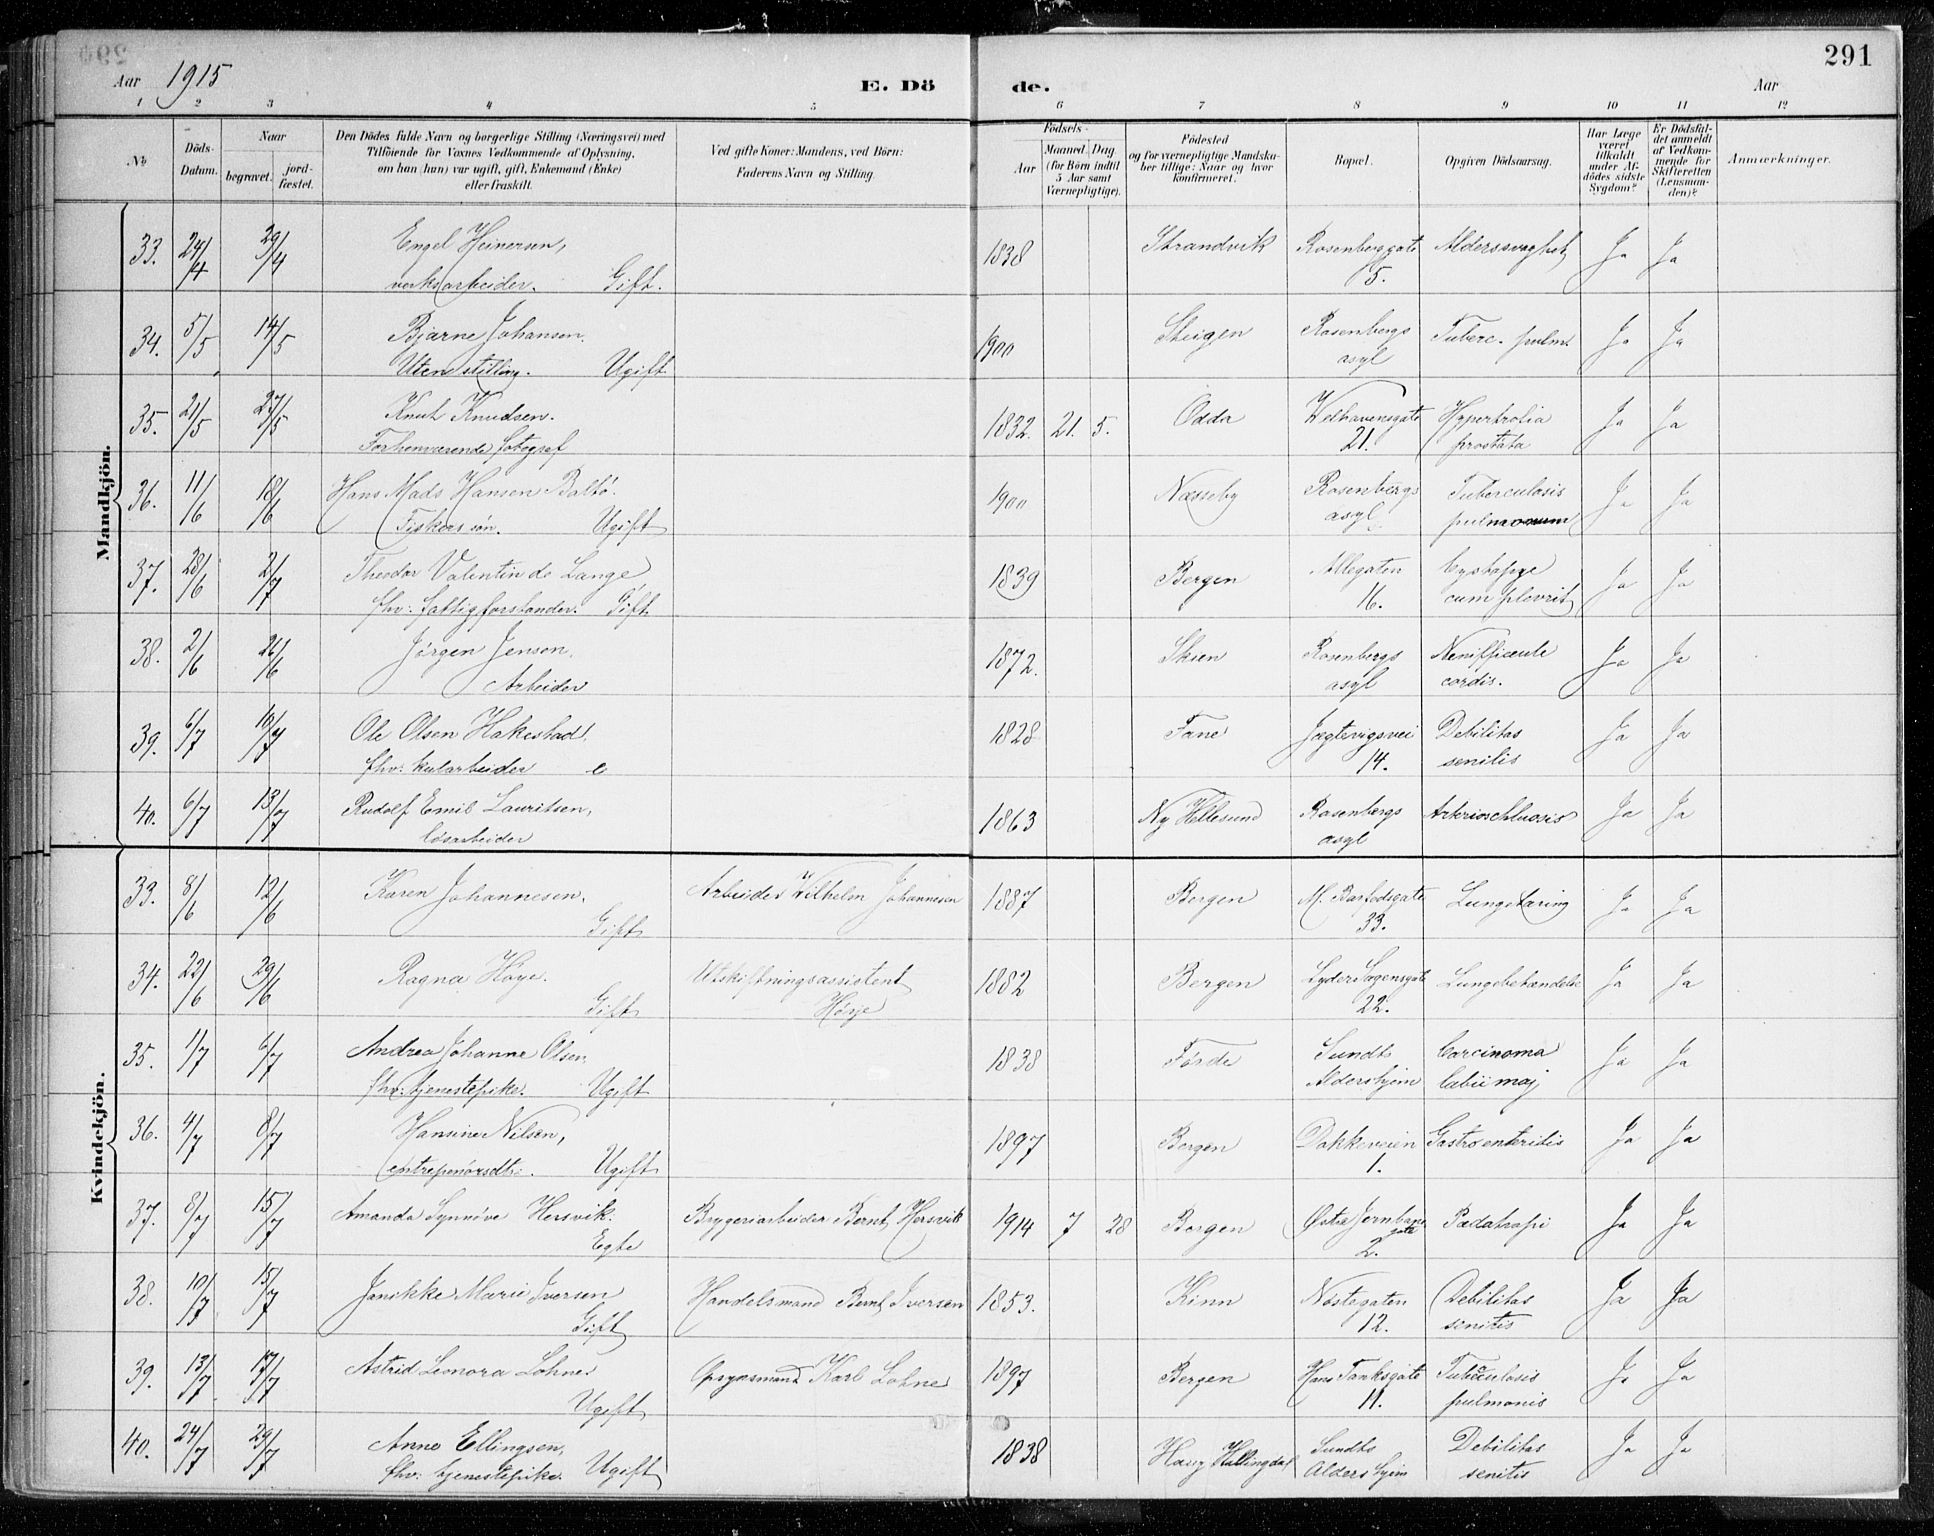 291
Aar 1915 E. Dö de. Aar
1 2 3 4 5 6 7 8 9 10 11 12
No
Döds-Datum.
Naar
begravet. jordfæstet.
Den Dödes fulde Navn og borgerlige Stilling (Næringsvei) med
Tilföiende for Voxnes Vedkommende af Oplysning,
om han (hun) var ugift, gift, Enkemand (Enke)
eller fraskilt.
Ved gifte Koner: Mandens, ved Börn:
Faderens Navn og Stilling.
Födsels-
Aar Maaned. Dag.
(for Börn indtil
5 Aar samt
Værnepligtige).
Födested
og for værnepligtige Mandska-
ber tillige: Naar og hvor
konfirmeret.
Bopæl.
Opgiven Dödsaarsag.
Har Læge
været
tilkaldt
under Af-
dödes sidste
Sygdom?
Er Dödsfal-
det anmeldt
af Vedkom-
mende for
Skifteretten
(Lensman-
den)?
Anmærkninger.
Mandkjön.
33. 24/4 29/4 Engel Heinersen, 1838 Strandvik Rosenbergsgate Alderssvaghet Ja Ja
verksarbeider. Gift. 5.
34. 5/5 14/5 Bjarne Johansen. 1900 Steigen Rosenbergs Tuberc. pulm. Ja Ja
Uten stilling. Ugift asyl
35. 21/5 27/5 Knut Knudsen. 1832. 21. 5. Odda Welhavensgate Hypertrofia Ja Ja
Forhenværende fotograf 21. prostata
36. 11/6 18/6 Hans Mads Hansen Baltó. 1900 Næsseby Rosenbergs Tuberculosis Ja Ja
Fiskers søn. Ugift asyl pulmonum
37. 28/6 2/7 Theodor Valentin de Lange 1839 Bergen Allegaten Ja Ja
fhv: fattigforstander. Gift 16. cum plevrit
38. 2/6 26/6 Jörgen Jenson. 1872. Skien Rosenbergs Ja Ja
Arbeider asyl cordis.
39. 6/7 10/7 Ole Olsen Hakestad. 1828 Fane Jægtevigsvei Debilitas Ja Ja
fhv: kularbeider e 14. senilis
40. 6/7 13/7 Rudolf Emil Lauritsen, 1863 Ny Hellesund Rosenbergs Ja Ja
løsarbeider asyl
Kvindekjön.
33. 8/6 12/6 Karen Johannesen. Arbeider Wilhelm Johannesen 1887 Bergen M. Barfodsgate Lungetæring Ja Ja
Gift 33.
34. 22/6 29/6 Ragna Høye. Utskiftningsassistent 1882 Bergen Lyder Sagensgate Lungebetændelse Ja Ja
Gift Høye 22.
35. 1/7 6/7 Andrea Johanne Olsen. 1838 Førde Sundts Carcinoma Ja Ja
fhv: tjenestepike. Ugift Aldershjem labii maj
36. 4/7 8/7 Hansine Nilsen, 1897 Bergen Dokkeveien Gastroenteritis Ja Ja
entreprenørsdt. Ugift 1.
37. 8/7 15/7 Amanda Synnöve Hersvik. Bryggeriarbeider Bernt Hersvik 1914 7 28 Bergen Østre Jernbane Pædatrofi Ja Ja
Egte gate 2.
38. 10/7 15/7 Janikke Marie Iversen Handelsmand Bernt Iversen 1853. Kinn Nøstegaten Debilitas Ja Ja
Gift 12. senilis
39. 13/7 17/7 Astrid Leonora Lohne Opsynsmand Karl Lohne 1897 Bergen Hans Tanksgate Tuberculosis Ja Ja
Ugift 11. pulmonis
40. 24/7 29/7 Anne Ellingsen, 1838 Haug Hallingdal Sundts Debilitas Ja Ja
fhv: tjenestepike. Ugift Aldershjem senilis